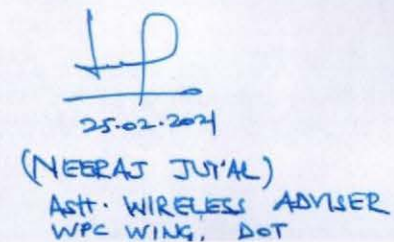 25.02.2021
(NEERAJ JUYAL)
Astt. WIRELESS ADVISER
WPC WING, DOT